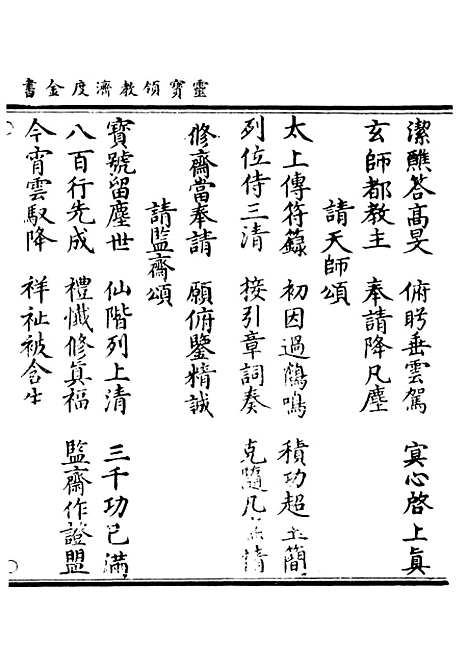 靈寶領教濟度金書
潔醮答高旻　俯盻垂雲駕　冥心啓上眞
玄師都教主　奉請降凡塵
請天師頌
太上傳符籙　初因過鶴鳴　積功超玉簡
列位侍三清　接引章詞奏　克隨凡請
修齋當奉請　願俯鑒精誠
請監齋頌
寶號留塵世　仙階列上清　三千功已滿
八百行先成　禮懺修眞福　監齋作證盟
今宵雲馭降　祥祉被含生